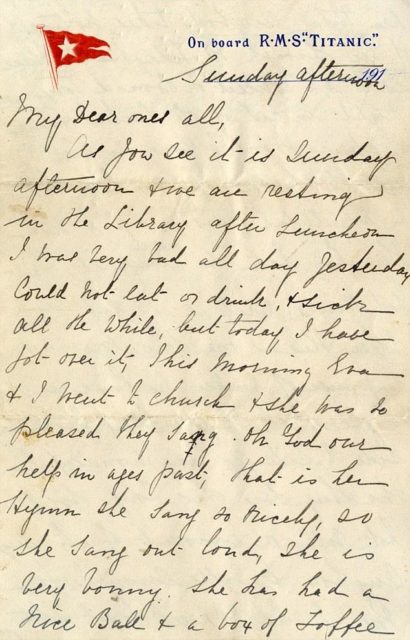 On board R·M·S·"TITANIC".
191
Sunday afternoon
My Dear ones all,
As you see it is Sunday
afternoon & we are resting
in the Library after Luncheon
I was very bad all day Yesterday
Could not eat or drink, & sick
all the while, but today I have
got over it, This morning Eva
& I went to church & she was so
pleased they sang. Oh God our
help in ages past, that is her
Hymn she sang so Nicely, so
she sang out loud, she is
very bonny. She has had a
Nice Ball & a box of Toffee